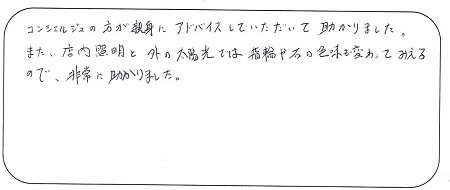 コンシェルジュの方が親身にアドバイスしていただいて助かりました。
また、店内照明と外の太陽光では指輪や石の色味も変わってみえる
ので、非常に助かりました。